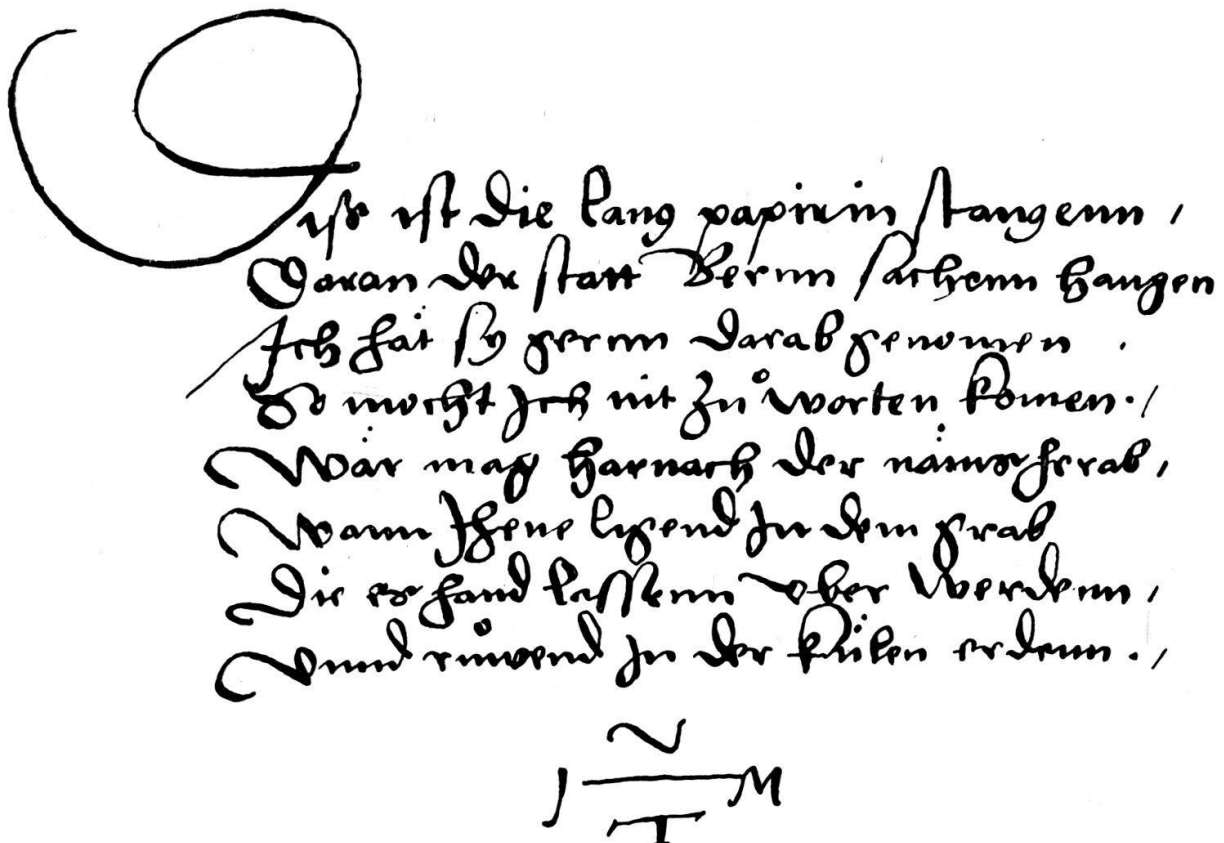 Diß ist die lang papirin stangenn /
Daran der statt Bernn sachenn hangen
Ich hät sy gernn darab genomen .
So mocht Ich nit zů worten komen . /
Wär mag harnach der näms herab /
Wann Jhene ligend In dem grab
Die es hand lassenn vber werdenn /
Vnnd růwend In der külen erdenn . /
N
J M
T